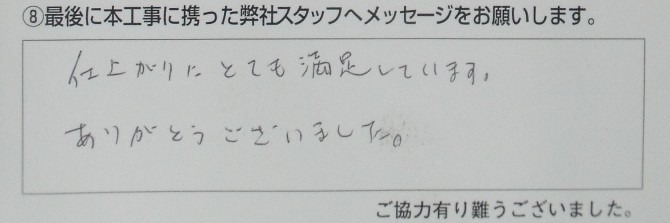 ⑧最後に本工事に携った弊社スタッフへメッセージをお願いします。
仕上がりにとても満足しています。
ありがとうございました。
ご協力有り難うございました。